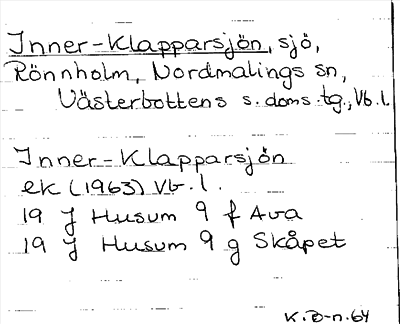 Inner-Klapparsjön, sjö,
Rönnholm, Nordmalings sn,
Västerbottens s. doms.tg., Vb.l.
Inner-Klapparsjön
ek (1963) Vb.l.
19 J Husum 9 f Ava
19 J Husum 9 g Skåpet
K.D-n.64